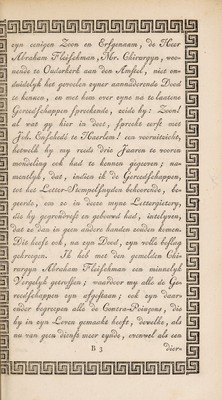 zyn eenigen Zoon en Erfgenaam, de Heer
Abraham Fleischman, Mr. Chirurgyn, woo-
nende te Ouderkerk aan den Amstel, niet on-
duidelyk het gevoelen zyner aannaderende Dood
te kennen, en met hem over zyne na te laatene
Gereedschappen spreekende, zeide hy: Zoon!
al wat gy hier in doet, spreekt eerst met
Joh. Enschedé te Haarlem! een vooruitzicht,
hetwelk hy my reeds drie Jaaren te vooren
mondeling ook had te kennen gegeeven; na-
mentlyk, dat, indien ik de Gereedschappen,
tot het Letter-Stempelsnyden behoorende, be-
geerde, om ze in deeze myne Lettergietery,
die hy gegrondvest en gebouwd had, inteleyven,
dat ze dan in geen anders handen zouden komen.
Dit heeft ook, na zyn Dood, zyn volle beslag
gekreegen. Ik heb met den gemelden Chi-
rurgyn Abraham Fleischman een minnelyk
Vergelyk getroffen; waardoor my alle de Ge-
reedschappen zyn afgestaan; ook zyn daar-
onder begreepen alle de Contra-Poinçons, die
hy in zyn Leven gemaakt heeft, dewelke, als
nu van geen dienst meer zynde, evenwel als een
B 3 dier-